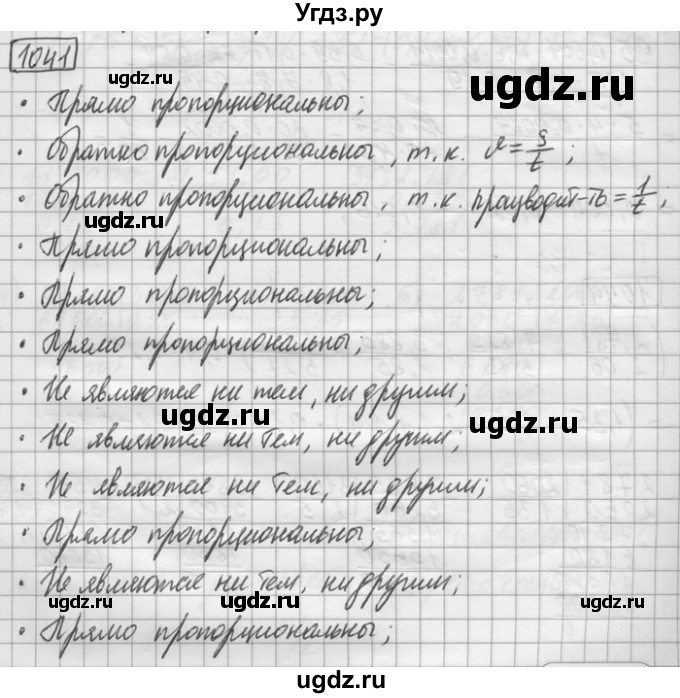 Угдз.ру
1041
ugdz.ru ugdz.ru
• Прямо пропорциональны;
• Обратно пропорциональны, т.к. v = s/t;
• Обратно пропорциональны, т.к. працводит-ть = 1/t;
ugdz.ru
• Прямо пропорциональны;
ugdz.ru
• Прямо пропорциональны;
ugdz.ru
• Прямо пропорциональны;
• Не являются ни тем, ни другим;
ugdz.ru ugdz.ru
• Не являются ни тем, ни другим;
• Не являются ни тем, ни другим;
ugdz.ru
• Прямо пропорциональны;
• Не являются ни тем, ни другим;
ugdz.ru ugdz.ru ugdz.ru
• Прямо пропорциональны;
ugdz.ru ugdz.ru